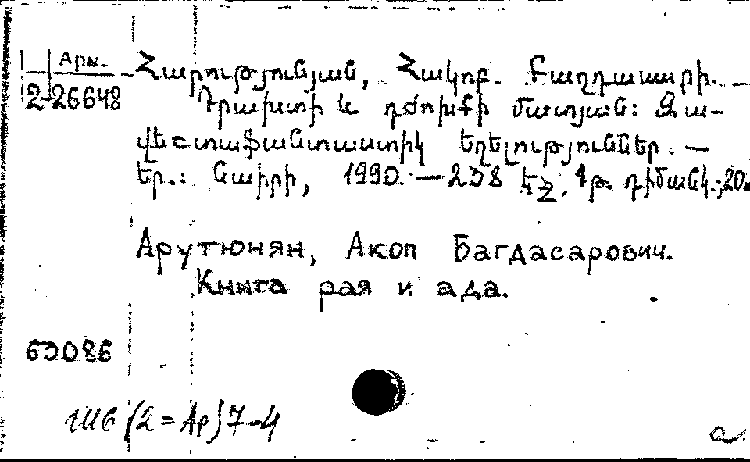 Арм.
2-26648
Հարությունյան, Հակոբ Բաղդասարի.
Դրախտի և դժոխքի մատյան: Զա-
վեշտաֆանտաստիկ եղելություններ. —
Եր.: Նաիրի, 1990. — 238 էջ, 1 թ. դիմանկ.; 20
Арутюнян, Акоп Багдасарович.
Книга рая и ада.
63086
Ш6 (2=Ар)7-4